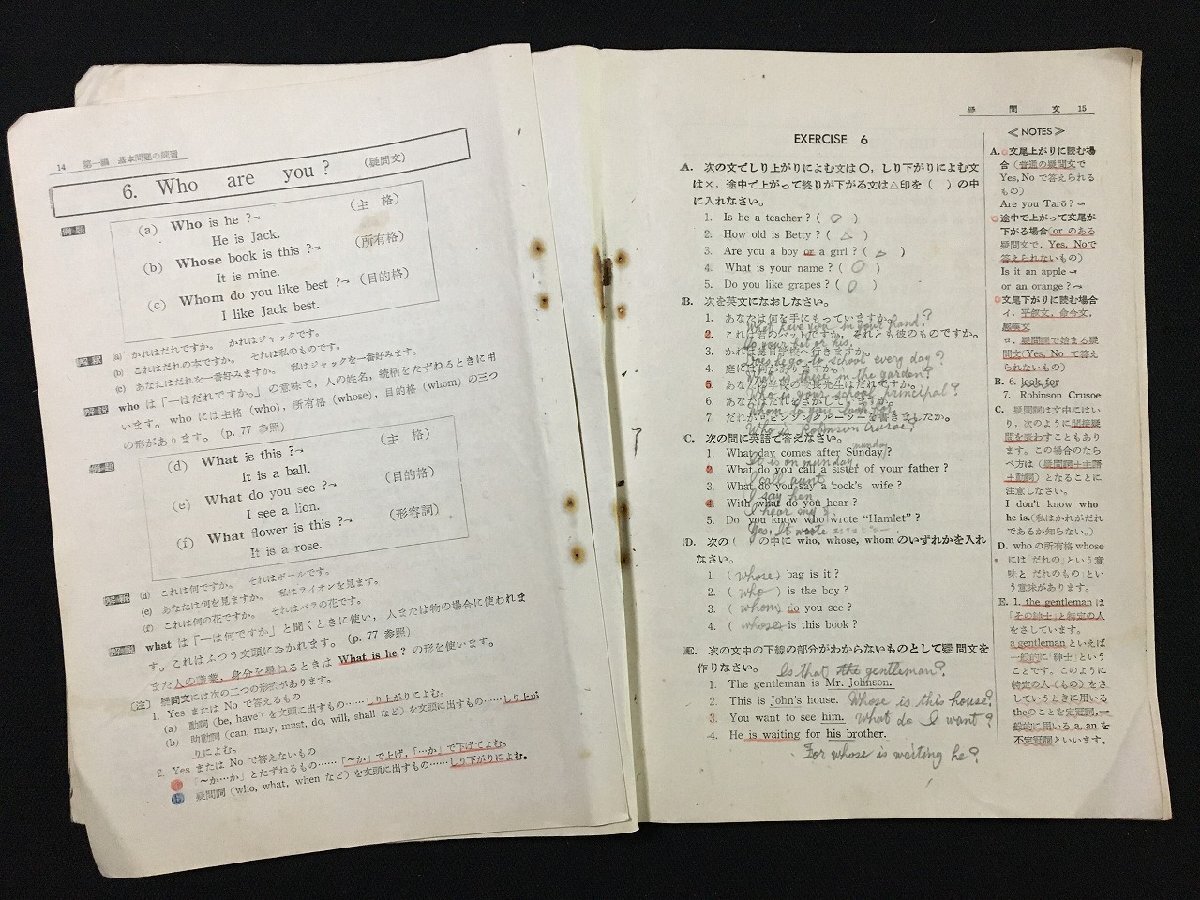 14 第一編 基本問題の練習
6. Who are you? (疑問文)
例題
(a) Who is he?
(主 格)
He is Jack.
(b) Whose book is this?
(所有格)
It is mine.
(c) Whom do you like best?
(目的格)
I like Jack best.
(a) かれはだれですか。 かれはジャックです。
(b) これはだれの本ですか。 それは私のものです。
(c) あなたはだれを一番好みますか。 私はジャックを一番好みます。
who は「一はだれですか。」の意味で、人の姓名，続柄をたずねるときに用
います。 who には主格 (who)，所有格 (whose)，目的格 (whom) の三つ
の形があります。 (p. 77 参照)
例題
(d) What is this?
(主 格)
It is a ball.
(e) What do you see?
(目的格)
I see a lion.
(f) What flower is this?
(形容詞)
It is a rose.
(d) これは何ですか。 それはボールです。
(e) あなたは何を見ますか。 私はライオンを見ます。
(f) これは何の花ですか。 それはバラの花です。
what は「一は何ですか」と聞くときに使い，人または物の場合に使われま
す。これはふつう文頭におかれます。 (p. 77 参照)
また人の職業，身分を尋ねるときは What is he? の形を使います。
〔注〕 疑問文には次の二つの形式があります。
1. Yes または No で答えるもの
(a) 動詞 (be, have) を文頭に出すもの……しり上がりによむ。
(b) 助動詞 (can, may, must, do, will, shall など) を文頭に出すもの……しり上が
りによむ。
2. Yes または No で答えないもの
「～か…か」とたずねるもの……「～か」で上げ，「…か」で下げてよむ。
疑問詞 (who, what, when など) を文頭に出すもの……しり下がりによむ。
疑 問 文 15
EXERCISE 6
A. 次の文でしり上がりによむ文は〇，しり下がりによむ文
は×，途中で上がって終りが下がる文は△印を ( ) の中
に入れなさい。
1. Is he a teacher? ( 〇 )
2. How old is Betty? ( △ )
3. Are you a boy or a girl? ( △ )
4. What is your name? ( 〇 )
5. Do you like grapes? ( 〇 )
B. 次を英文になおしなさい。
1. あなたは何を手にもっていますか。
What have you in your hand?
2.
それとも彼のものですか。
Do your hat or his.
3.
Does he go to school every day?
4.
in the garden?
5.
Who is your school principal?
6
7
Who is Robinson Crusoe?
C. 次の問に英語で答えなさい。
1 What day comes after Sunday?
It is on munday
2. What do you call a sister of your father?
I call aunt
3. What do you say a cock's wife?
I say hen
4. With what do you hear?
I hear my
5. Do you know who wrote "Hamlet"?
Yes, It wrote
D. 次の ( ) の中に who, whose, whom のいずれかを入れ
なさい。
1 (whose) bag is it?
2. (who) is the boy?
3. (whom) do you see?
4. (whose) is this book?
E. 次の文中の下線の部分がわからないものとして疑問文を
作りなさい。
Is that the gentleman?
1. The gentleman is Mr. Johnson.
2. This is John's house. Whose is this house?
3. You want to see him. What do I want?
4. He is waiting for his brother.
For whose is waiting he?
≪NOTES≫
A. 文尾上がりに読む場
合 (普通の疑問文で
Yes, No で答えられる
もの)
Are you Taro?
途中で上がって文尾が
下がる場合 (or のある
疑問文で，Yes, Noで
答えられないもの)
Is it an apple
or an orange?
文尾下がりに読む場合
イ．平叙文，命令文，
感嘆文
ロ．疑問詞で始まる疑
問文(Yes, No で答え
られないもの)
B. 6. look for
7. Robinson Crusoe
C. 疑問詞は文中にはい
り，次のように間接疑
問を表わすこともあり
ます。この場合のなら
べ方は (疑問詞＋主語
＋動詞) となることに
注意しなさい。
I don't know who
he is.(私はかれがだれ
であるか知らない。)
D. who の所有格 whose
には「だれの」という意
味と「だれのもの」とい
う意味があります。
E. 1. the gentleman は
「その紳士」と特定の人
をさしています。
a gentleman といえば
一般的に「紳士」という
ことです。このように
特定の人(もの)をさ
していうときに用いる
theのことを定冠詞，一
般的に用いる a, an を
不定冠詞といいます。